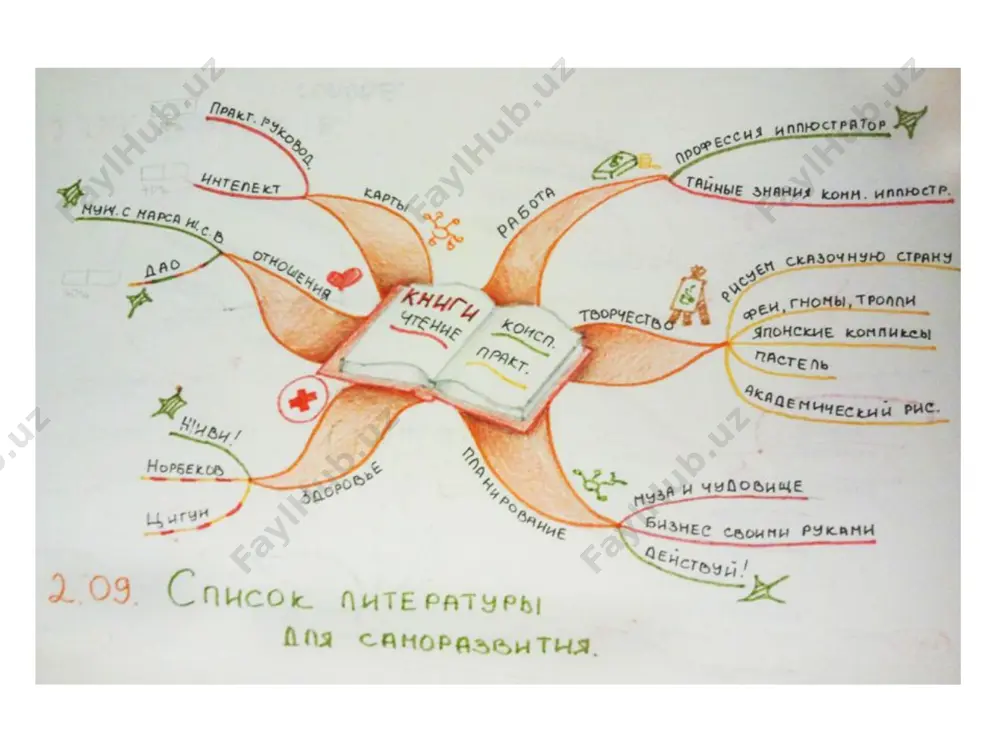 ПРАКТ. РУКОВОД.
ИНТЕЛЕКТ
КАРТЫ
МУЖ. С МАРСА Ж.С.В
ДАО
ОТНОШЕНИЯ
ЖИВИ!
НОРБЕКОВ
ЦИГУН
ЗДОРОВЬЕ
КНИГИ
ЧТЕНИЕ
КОНСП.
ПРАКТ.
РАБОТА
ПРОФЕССИЯ ИЛЛЮСТРАТОР
ТАЙНЫЕ ЗНАНИЯ КОММ. ИЛЛЮСТР.
ТВОРЧЕСТВО
РИСУЕМ СКАЗОЧНУЮ СТРАНУ
ФЕИ, ГНОМЫ, ТРОЛЛИ
ЯПОНСКИЕ КОМПИКСЫ
ПАСТЕЛЬ
АКАДЕМИЧЕСКИЙ РИС.
ПЛАНИРОВАНИЕ
МУЗА И ЧУДОВИЩЕ
БИЗНЕС СВОИМИ РУКАМИ
ДЕЙСТВУЙ!
2.09. СПИСОК ЛИТЕРАТУРЫ
ДЛЯ САМОРАЗВИТИЯ.
FaylHub.uz
FaylHub.uz
FaylHub.uz
FaylHub.uz
FaylHub.uz
FaylHub.uz